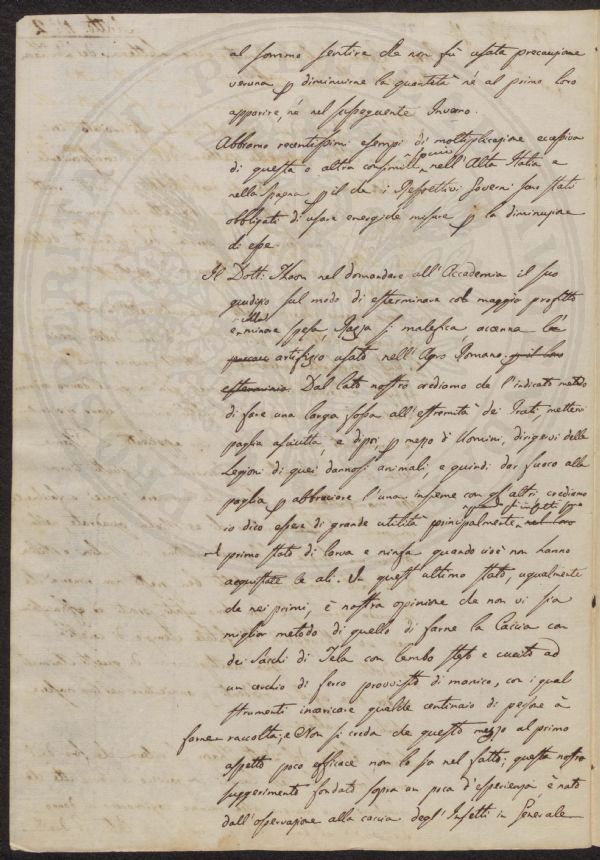 al sommo sentire che non fù usata precauzione
veruna p diminuirne la quantità né al primo loro
apparire, né nel susseguente Inverno.
Abbiamo recentissimi esempi di moltiplicazione eccessiva
di questa o altra consimile specie nell'Alta Italia e
nella Spagna p il che i Rispettivi Governi son stati
obbligati di usare energiche misure p la diminuzione
di esse.
Il Dott: Thoon nel domandare all'Accademia il suo
giudizio sul modo di esterminare con maggior profitto
e minore spesa Razza sì malefica accenna
artifizio usato nell'Agro Romano.
Dal lato nostro crediamo che l'indicato metodo
di fare una larga fossa all'estremità dei Prati, mettervi
paglia asciutta, e dipoi p mezzo di Uomini, dirigervi delle
Legioni di quei dannosi animali, e quindi dar fuoco alla
paglia p abbruciare l'una insieme con gl'altri crediamo
io dico essere di grande utilità principalmente
nel primo stato di larva e ninfa quando cioè non hanno
acquistate le ali. In quest'ultimo stato, ugualmente
che nei primi, è nostra opinione che non vi sia
miglior metodo di quello di farne la Caccia con
dei Sacchi di Tela con lembo steso e cucito ad
un cerchio di ferro provvisto di manico, con i quali
strumenti incaricare qualche centinaio di persone à
farne raccolta; e Non si creda che questo mezzo al primo
aspetto poco efficace non lo sia nel fatto; questo nostro
suggerimento fondato sopra un poca d'esperienza, è nato
dall'osservazione alla caccia degl'Insetti in Generale